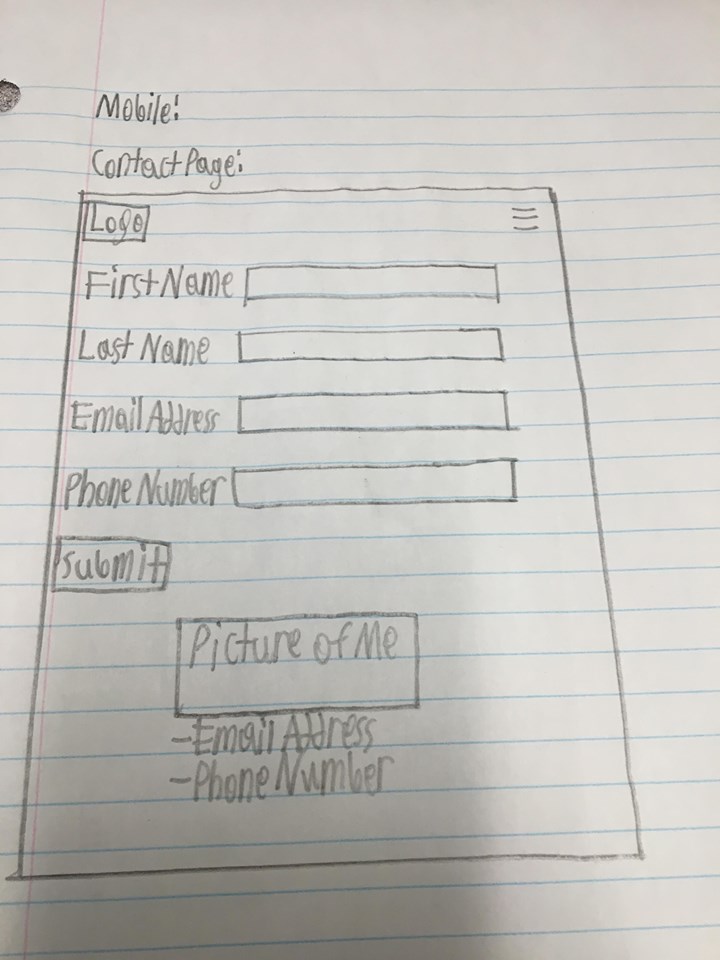 Mobile:
Contact Page:
Logo
First Name
Last Name
Email Address
Phone Number
Submit
Picture of Me
-Email Address
-Phone Number